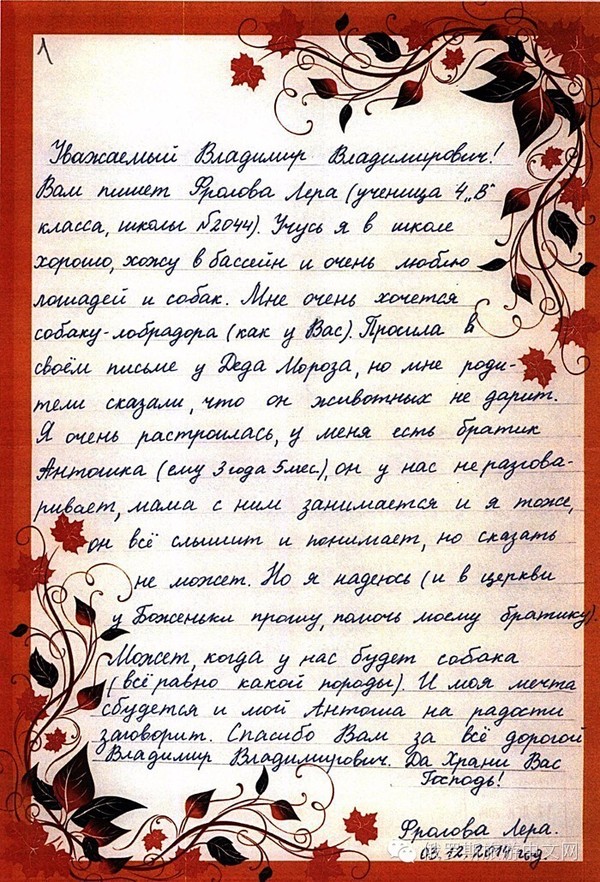 1
Уважаемый Владимир Владимирович!
Вам пишет Фролова Лера (ученица 4 „В"
класса, школы №2044). Учусь я в школе
хорошо, хожу в бассейн и очень люблю
лошадей и собак. Мне очень хочется
собаку-лобрадора (как у Вас). Просила в
своём письме у Деда Мороза, но мне роди-
тели сказали, что он животных не дарит.
Я очень растроилась, у меня есть братик
Антошка (ему 3 года 5 мес.), он у нас не разгова-
ривает, мама с ним занимается и я тоже,
он всё слышит и понимает, но сказать
не может. Но я надеюсь (и в церкви
у Боженьки прошу, помочь моему братику).
Может, когда у нас будет собака
(всё равно какой породы). И моя мечта
сбудется и мой Антоша на радости
заговорит. Спасибо Вам за всё дорогой
Владимир Владимирович. Да Храни Вас
Господь!
Фролова Лера.
03.12.2014 год.